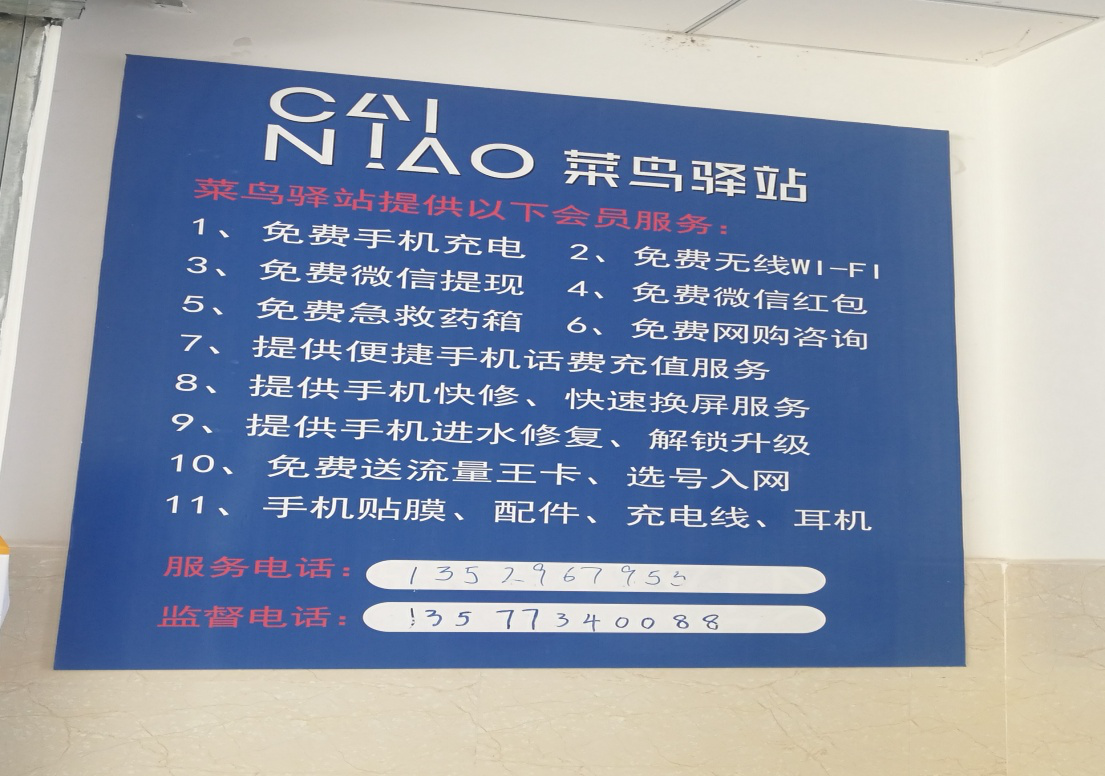 CAI
NIAO 菜鸟驿站
菜鸟驿站提供以下会员服务：
1、免费手机充电 2、免费无线WI-FI
3、免费微信提现 4、免费微信红包
5、免费急救药箱 6、免费网购咨询
7、提供便捷手机话费充值服务
8、提供手机快修、快速换屏服务
9、提供手机进水修复、解锁升级
10、免费送流量王卡、选号入网
11、手机贴膜、配件、充电线、耳机
服务电话：1352967955
监督电话：13577340088